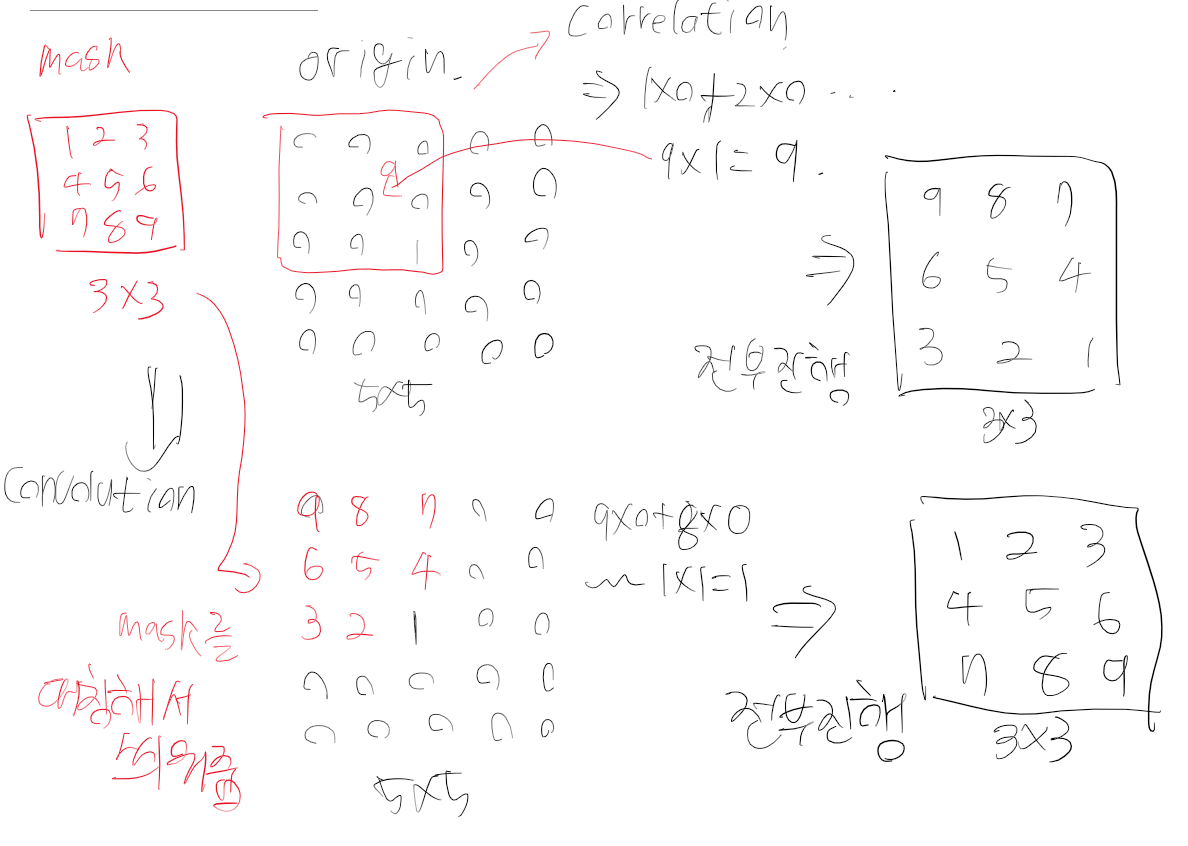 mask
1 2 3
4 5 6
7 8 9
3×3
origin.
0 0 0 0 0
9
0 0 0 0 0
0 0 1 0 0
0 0 0 0 0
0 0 0 0 0
5×5
Correlation
⇒ 1×0+2×0 ....
9×1=9.
⇒
전부진행
9 8 7
6 5 4
3 2 1
3×3
Convolution
mask를
대칭해서
띄워줌
9 8 7 0 0
6 5 4 0 0
3 2 1 0 0
0 0 0 0 0
0 0 0 0 0
5×5
9×0+8×0
~ 1×1=1
⇒
전부진행
1 2 3
4 5 6
7 8 9
3×3